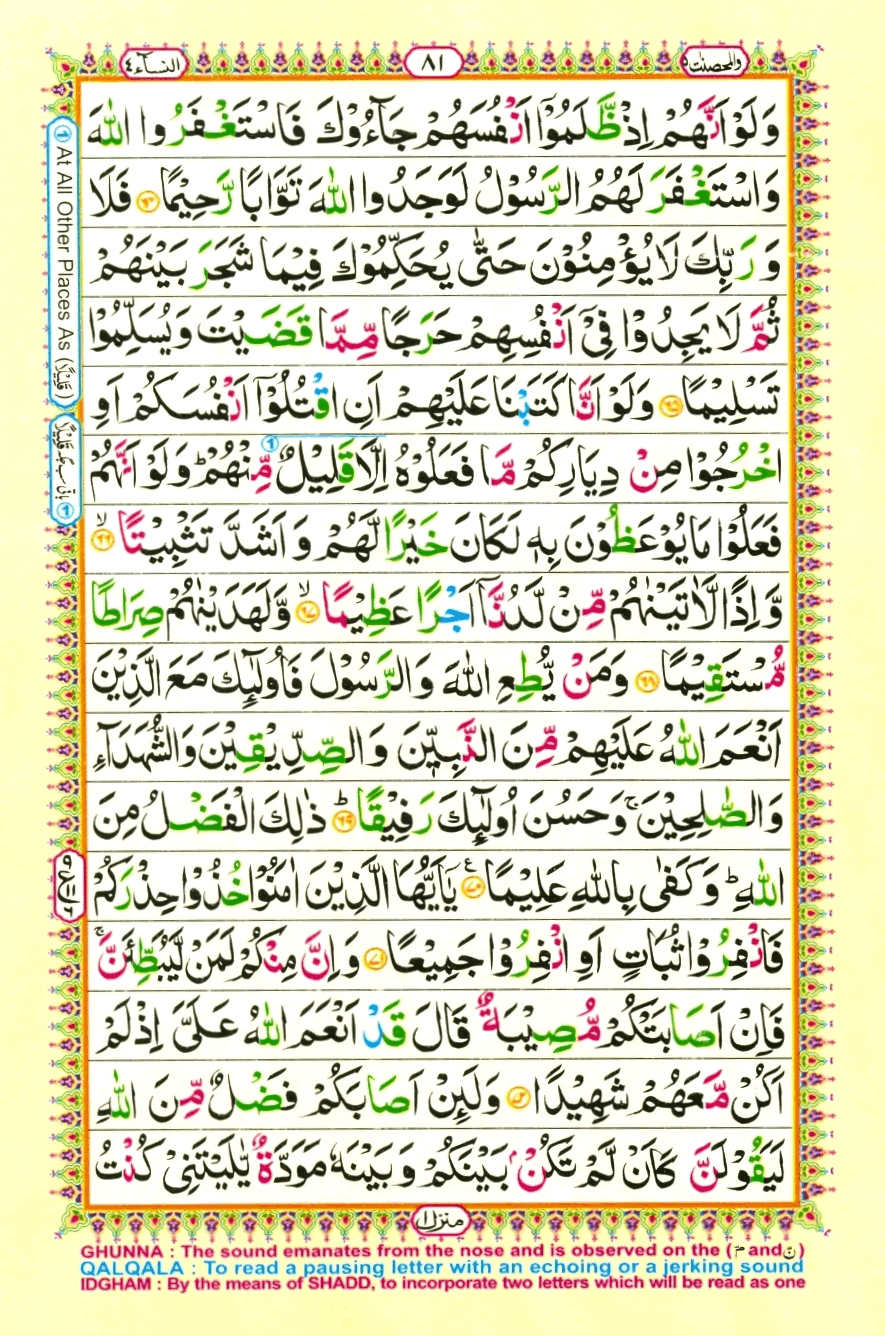 والمحصنت ۵
۸۱
النسآء ۴
وَلَوْ اَنَّهُمْ اِذْ ظَّلَمُوْٓا اَنْفُسَهُمْ جَآءُوْكَ فَاسْتَغْفَرُوا اللّٰهَ
وَاسْتَغْفَرَ لَهُمُ الرَّسُوْلُ لَوَجَدُوا اللّٰهَ تَوَّابًا رَّحِيْمًا ۶۴ فَلَا
وَ رَبِّكَ لَا يُؤْمِنُوْنَ حَتّٰى يُحَكِّمُوْكَ فِيْمَا شَجَرَ بَيْنَهُمْ
ثُمَّ لَا يَجِدُوْا فِيْٓ اَنْفُسِهِمْ حَرَجًا مِّمَّا قَضَيْتَ وَيُسَلِّمُوْا
تَسْلِيْمًا ۶۵ وَلَوْ اَنَّا كَتَبْنَا عَلَيْهِمْ اَنِ اقْتُلُوْٓا اَنْفُسَكُمْ اَوِ
اخْرُجُوْا مِنْ دِيَارِكُمْ مَّا فَعَلُوْهُ اِلَّا قَلِيْلٌ ۱ مِّنْهُمْ ؕ وَلَوْ اَنَّهُمْ
فَعَلُوْا مَا يُوْعَظُوْنَ بِهٖ لَكَانَ خَيْرًا لَّهُمْ وَ اَشَدَّ تَثْبِيْتًا ۙ ۶۶
وَّاِذًا لَّاٰتَيْنٰهُمْ مِّنْ لَّدُنَّآ اَجْرًا عَظِيْمًا ۙ ۶۷ وَّلَهَدَيْنٰهُمْ صِرَاطًا
مُّسْتَقِيْمًا ۶۸ وَمَنْ يُّطِعِ اللّٰهَ وَالرَّسُوْلَ فَاُولٰٓئِكَ مَعَ الَّذِيْنَ
اَنْعَمَ اللّٰهُ عَلَيْهِمْ مِّنَ النَّبِيّٖنَ وَالصِّدِّيْقِيْنَ وَالشُّهَدَآءِ
وَالصّٰلِحِيْنَ ۚ وَحَسُنَ اُولٰٓئِكَ رَفِيْقًا ؕ ۶۹ ذٰلِكَ الْفَضْلُ مِنَ
اللّٰهِ ؕ وَكَفٰى بِاللّٰهِ عَلِيْمًا ۷۰ ع يٰٓاَيُّهَا الَّذِيْنَ اٰمَنُوْا خُذُوْا حِذْرَكُمْ
فَانْفِرُوْا ثُبَاتٍ اَوِ انْفِرُوْا جَمِيْعًا ۷۱ وَاِنَّ مِنْكُمْ لَمَنْ لَّيُبَطِّئَنَّ ۚ
فَاِنْ اَصَابَتْكُمْ مُّصِيْبَةٌ قَالَ قَدْ اَنْعَمَ اللّٰهُ عَلَيَّ اِذْ لَمْ
اَكُنْ مَّعَهُمْ شَهِيْدًا ۷۲ وَلَئِنْ اَصَابَكُمْ فَضْلٌ مِّنَ اللّٰهِ
لَيَقُوْلَنَّ كَاَنْ لَّمْ تَكُنْۢ بَيْنَكُمْ وَبَيْنَهٗ مَوَدَّةٌ يّٰلَيْتَنِيْ كُنْتُ
① At All Other Places As (قَلِيْلًا)
① باقی سب جگہ قَلِيْلًا
منزل ۱
GHUNNA : The sound emanates from the nose and is observed on the (مّ and نّ)
QALQALA : To read a pausing letter with an echoing or a jerking sound
IDGHAM : By the means of SHADD, to incorporate two letters which will be read as one